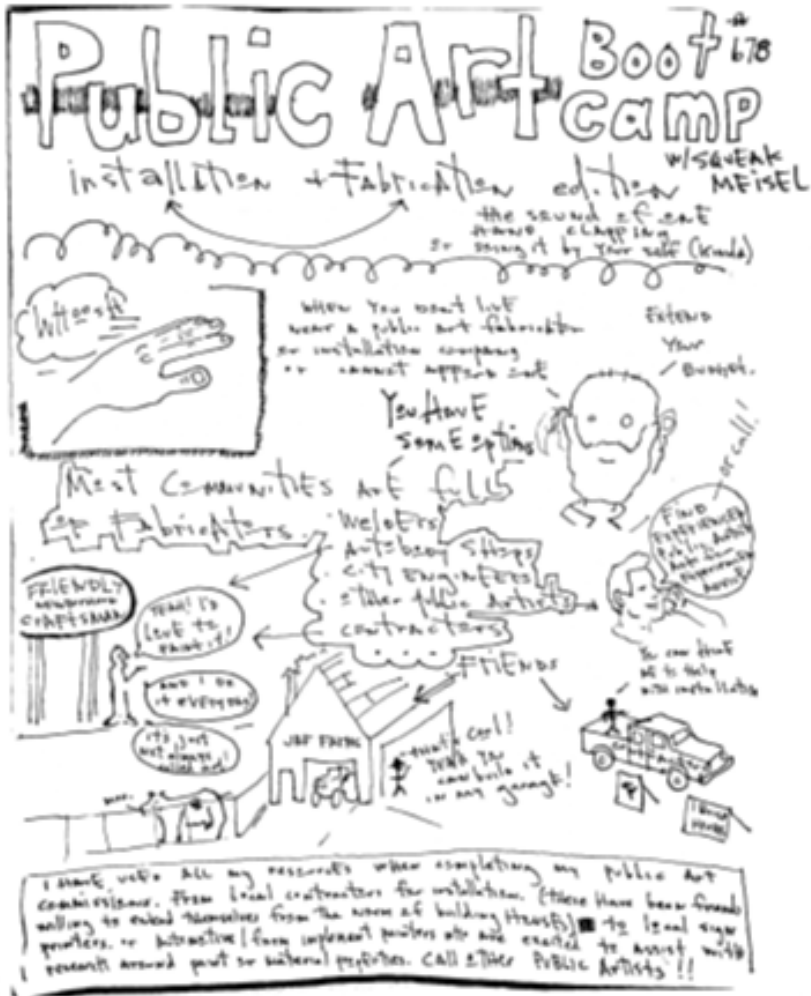 Public Art Boot Camp
# 678
w/ SQUEAK
MEISEL
installation + Fabrication edition
the sound of one
Hand clapping
or doing it by your self (kinda)
WHoosh
when You Don't live
near a public art fabricator
or installation company
or cannot afford one
EXTEND
Your
Budget.
You Have
some options
or call!
Most Communities are full
of Fabricators.
Welders
Autobody Shops
City Engineers
other public Artists
contractors
FIND
EXPERIENCED
Public Artist
FRIENDLY
CRAFTSMAN
YEAH! I'd
LOVE to
PAINT it!
AND I DO
it everyday!
it's just
not always
called art!
FRIENDS
You can
with installation
that's cool!
YEAH I
can build it
in my garage!
I have used ALL my resources when completing my public Art
commissions. From local contractors for installation. (these Have been friends
willing to extend themselves from the norm of building Houses) to local sign
printers, or automotive/farm implement painters who are excited to assist with
research around paint or material properties. CALL other PUBLIC Artists!!